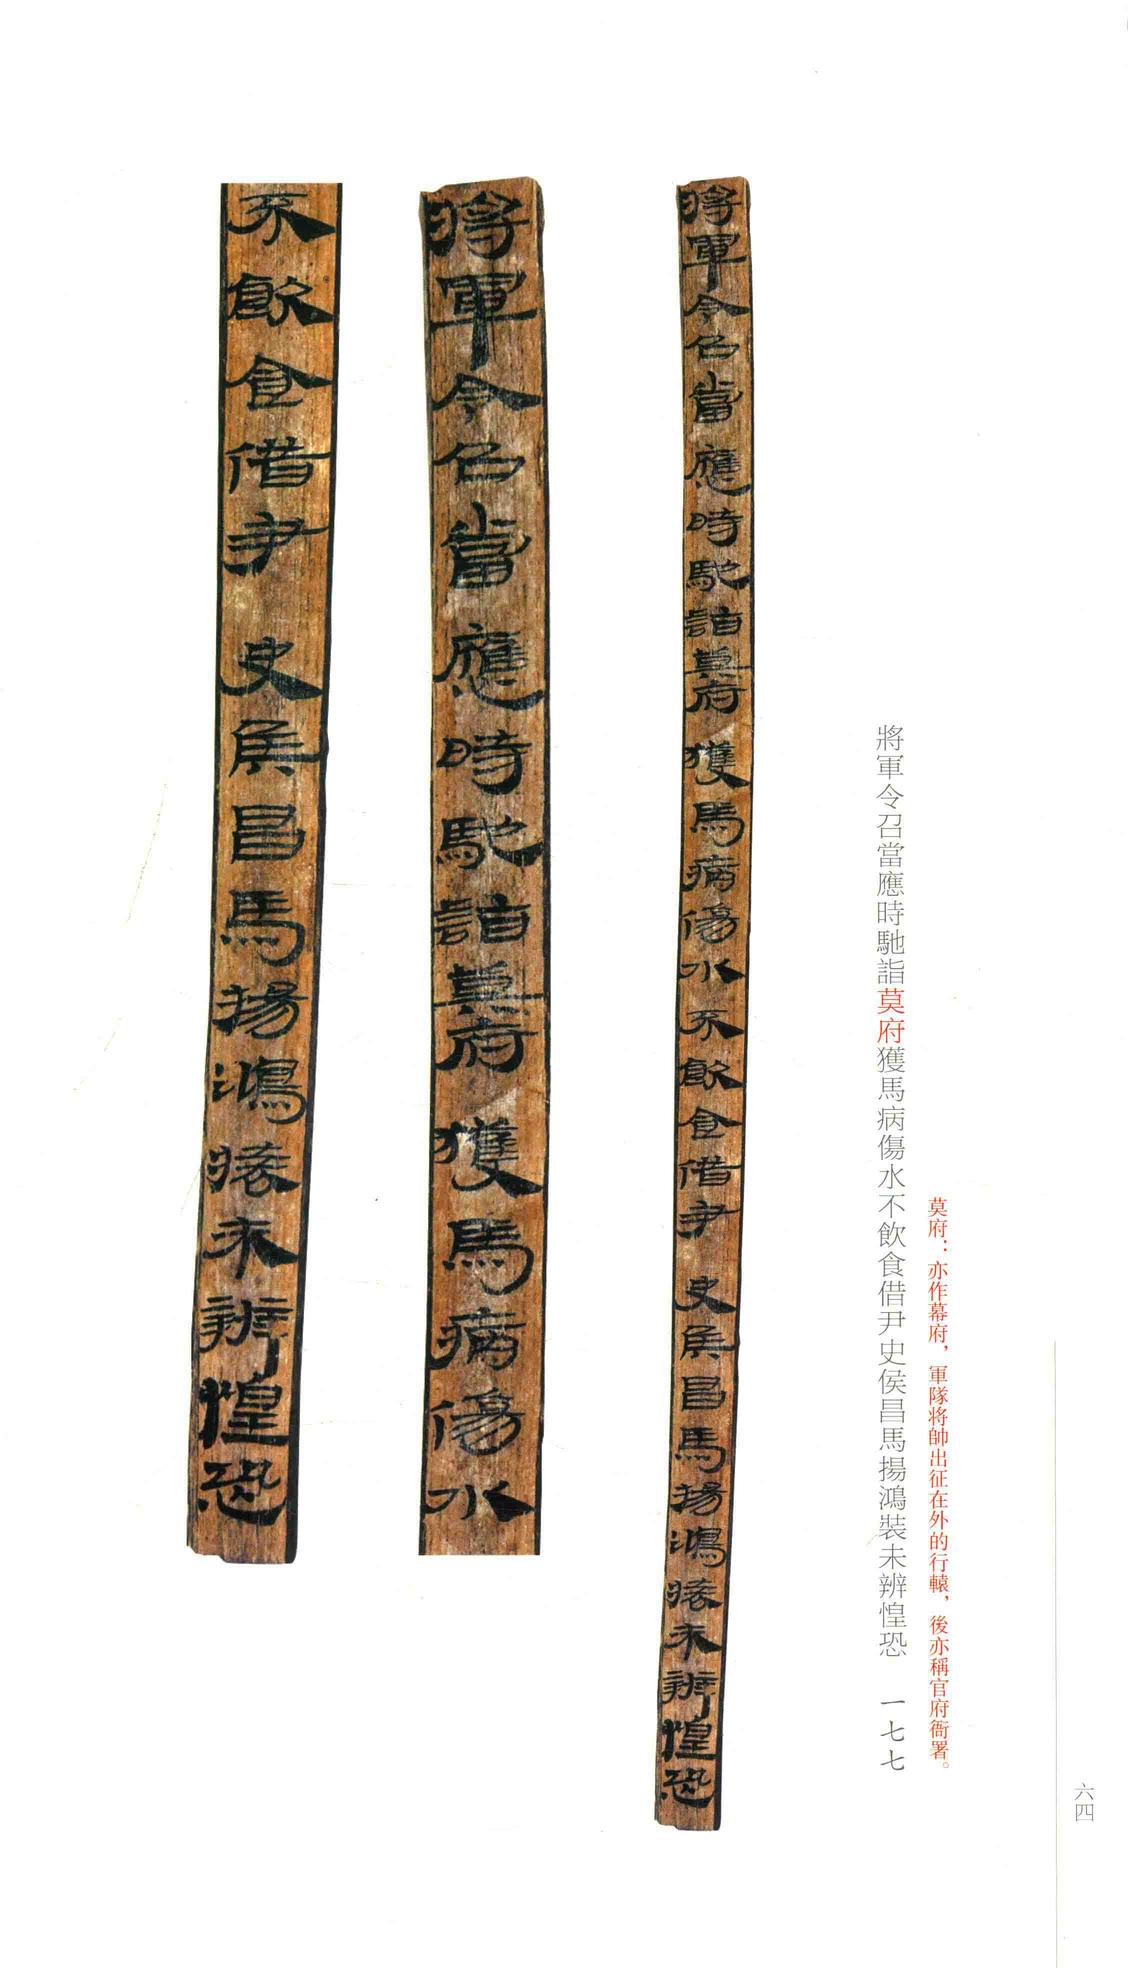 六四
莫府：亦作幕府，軍隊将帥出征在外的行轅，後亦稱官府衙署。
將軍令召當應時馳詣莫府獲馬病傷水不飲食借尹史侯昌馬揚鴻裝未辨惶恐　一七七
將軍令召當應時馳詣莫府獲馬病傷水不飲食借尹史侯昌馬揚鴻裝未辨惶恐
將軍令召當應時馳詣莫府獲馬病傷水
不飲食借尹史侯昌馬揚鴻裝未辨惶恐